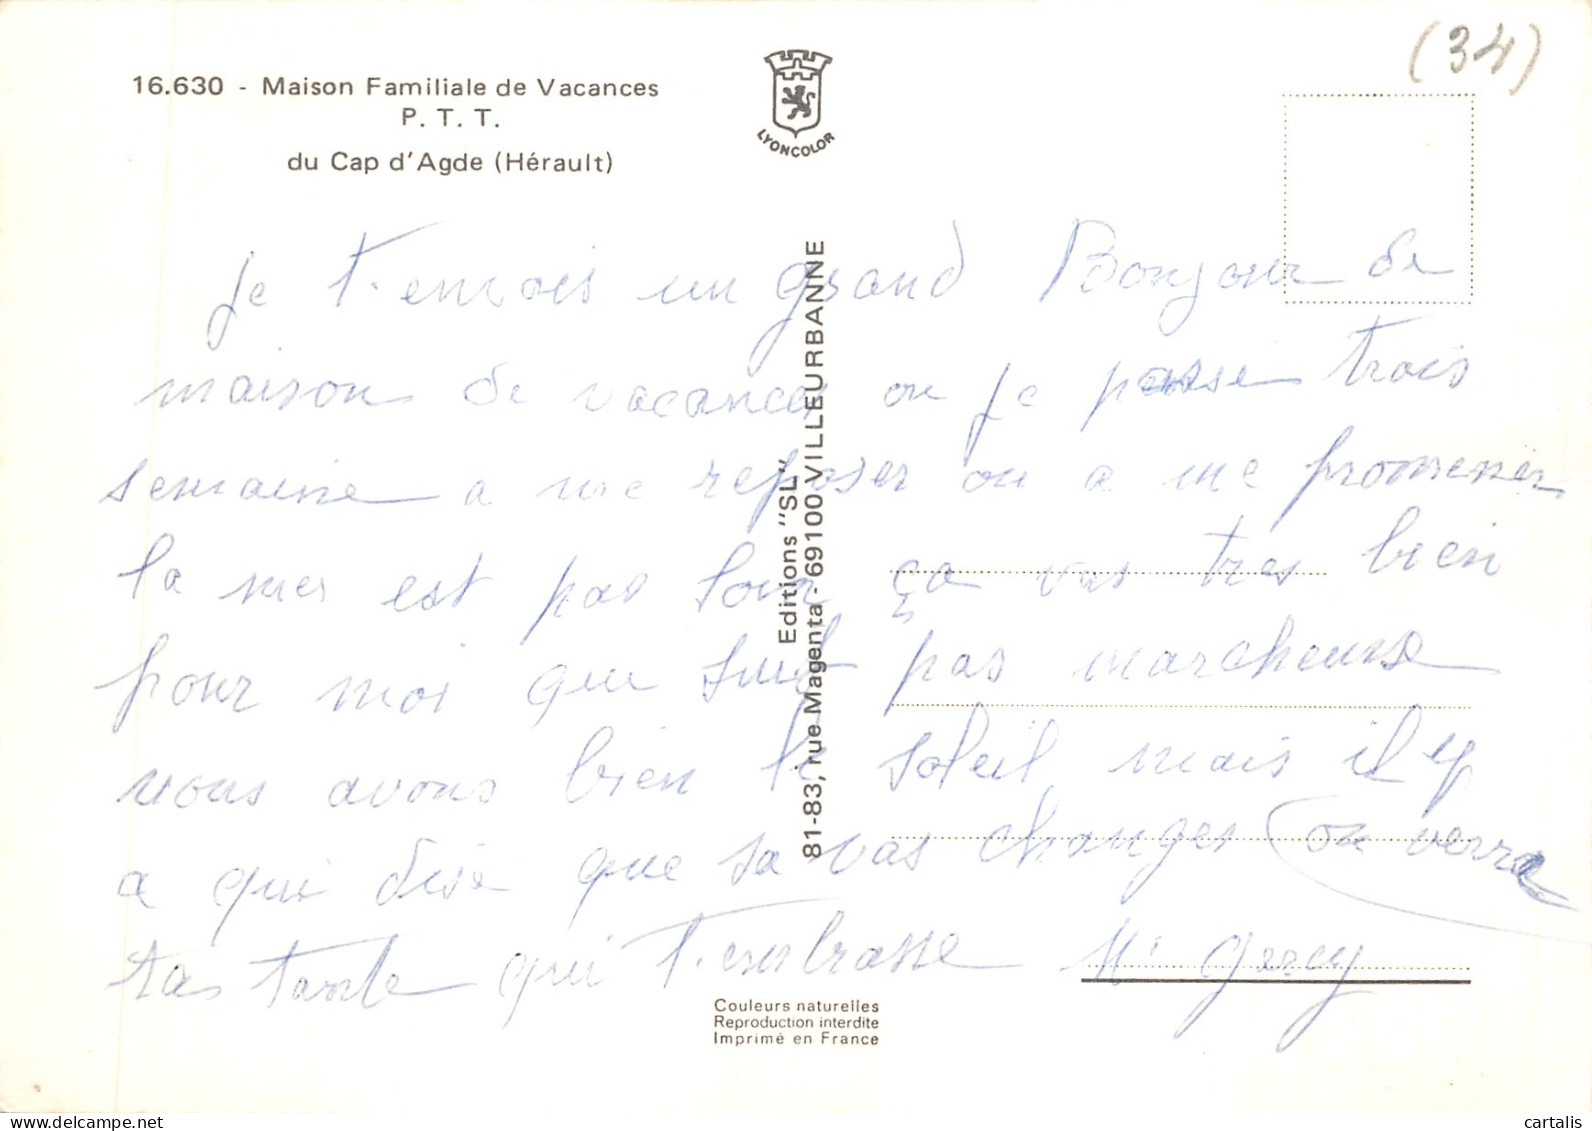 (34)
16.630 - Maison Familiale de Vacances
P. T. T.
du Cap d'Agde (Hérault)
LYONCOLOR
Je t'envois un grand Bonjour de
maison de vacances ou je passe trois
semaine a me reposer ou a me promener
la mer est pas loin ça vas tres bien
pour moi que suis pas marcheuse
nous avons bien le soleil mais il y
a qui dise que sa vas changer on verra
tas tante qui t'embrasse
Editions "SL"
81-83, rue Magenta - 69100 VILLEURBANNE
Couleurs naturelles
Reproduction interdite
Imprimé en France
cartalis